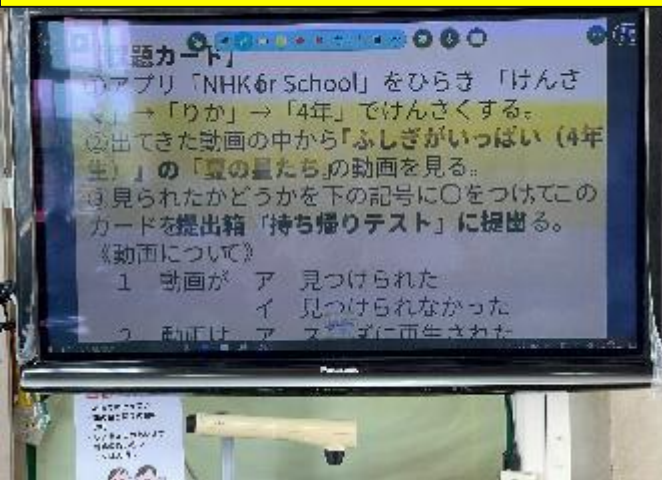 題カード】
①アプリ「NHK for School」をひらき 「けんさ
→「りか」→「4年」でけんさくする。
②出てきた動画の中から「ふしぎがいっぱい（4年
生）」の「夏の星たち」の動画を見る。
③見られたかどうかを下の記号に〇をつけてこの
カードを提出箱「持ち帰りテスト」に提出する。
《動画について》
1 動画が ア 見つけられた
イ 見つけられなかった
2 動画は ア ス に再生された
Panasonic